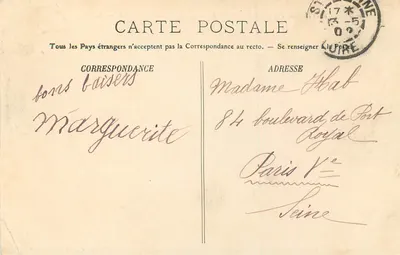 CARTE POSTALE
Tous les Pays étrangers n'acceptent pas la Correspondance au recto. — Se renseigner à la Poste
CORRESPONDANCE
bons baisers
Marguerite
ADRESSE
Madame Hab
84 boulevard de Port
Royal
Paris Ve
Seine
17 *
5